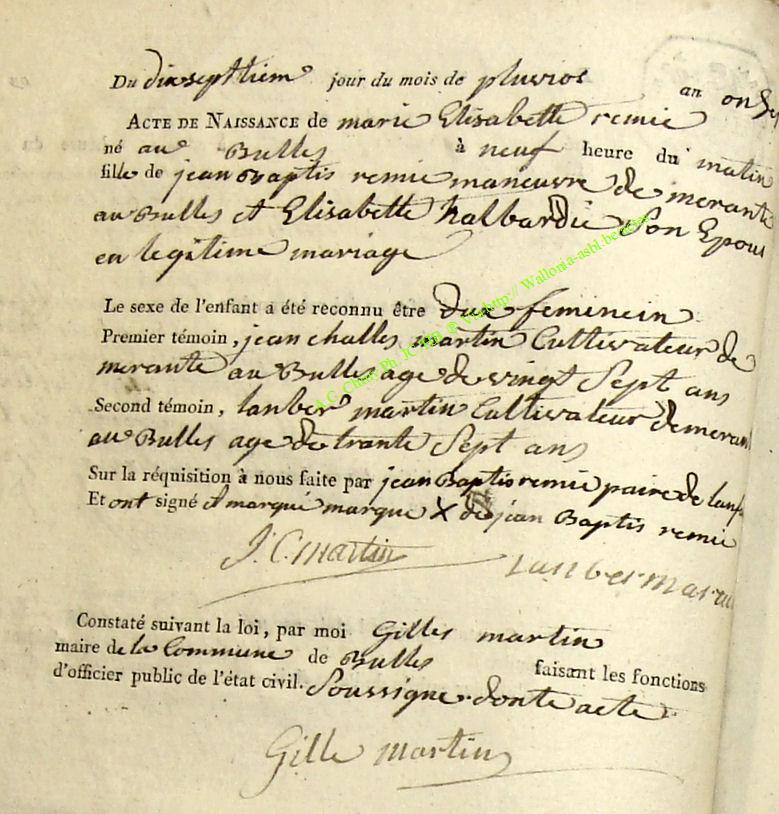 Du dix septiem jour du mois de pluvios an onse
ACTE DE NAISSANCE de marie Elisabette remie
né au Bulles à neuf heure du matin
fille de jean Baptis remie maneuvre de merante
au Bulles et Elisabette halbardie Son Epous
en legitime mariage
Le sexe de l'enfant a été reconnu être due feminein
Premier témoin, jean challes martin Cultivateur de
merante au Bulles age de vingt Sept ans
Second témoin, lanber martin Cultivateur demeran
au Bulles age de trante Sept ans
Sur la réquisition à nous faite par jean Baptis remie paire de lanf
Et ont signé et marqué marque X de jean Baptis remie
J. C. martin
Lanber martin
Constaté suivant la loi, par moi Gilles martin
maire de la Commune de Bulles faisant les fonctions
d'officier public de l'état civil. Soussigne donte acte
Gille martin